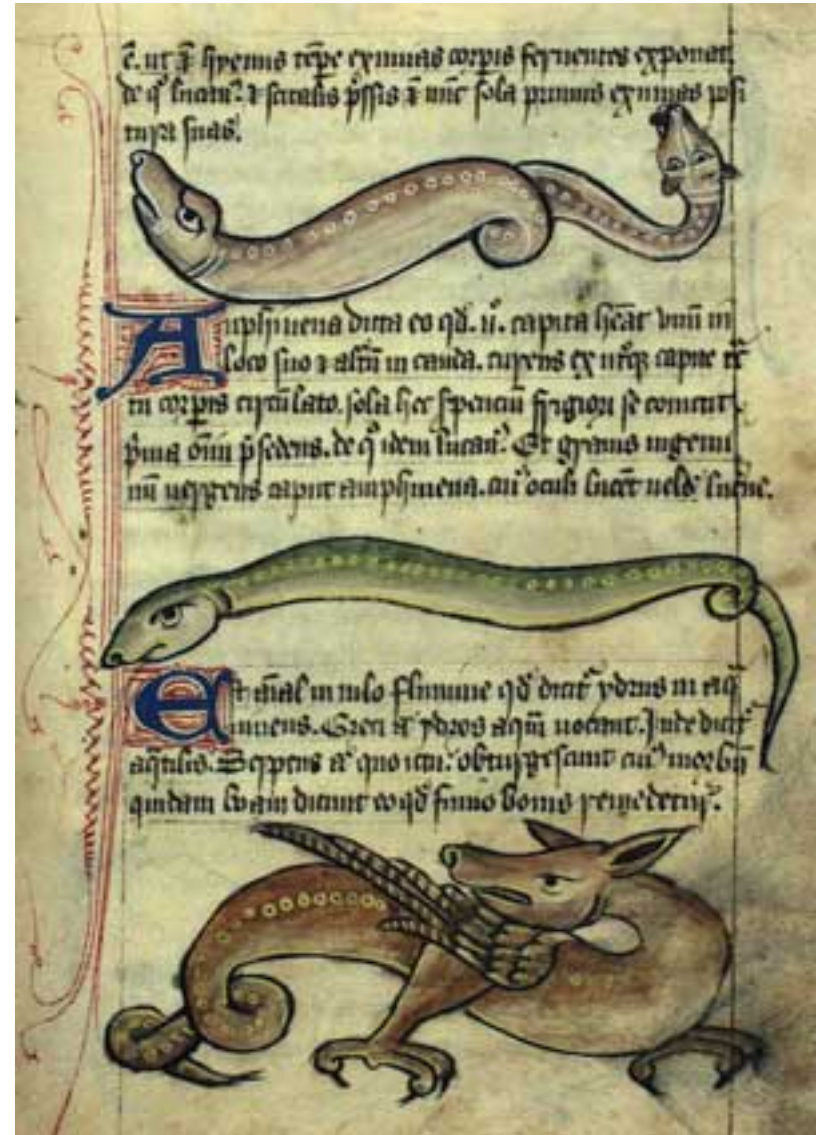 ē. ut ⁊ hyemis tēpe exuuias corpis feruentes exponat.
de qͦ lucanꝰ. ⁊ scitalis spssis ⁊ nūc sola pruinis exuuias posi
tura suas.
Amphiuena dicta eo qd̄. ii. capita hēat unū in
loco suo ⁊ altū in cauda. currens ex utqꝫ capite
corpis circulato. sola hec serpentiū frigori se comittit
pͥma oīm p̄cedens. de qͦ idem lucanꝰ. Et grauis in gemi
nū uergens caput amphiuena. cuiꝰ oculi lucēt uelud lucne.
Est aīal in nilo flumine qd̄ dicit̄ ydrus in aq̄
uiuens. Greci eī ydros aquā uocant. Inde dicit̄
aq̄tilis. Serpens a quo icti obturgescunt cuiꝰ morbū
quidam boam dicunt eo qd̄ fimo bouis remedetur.